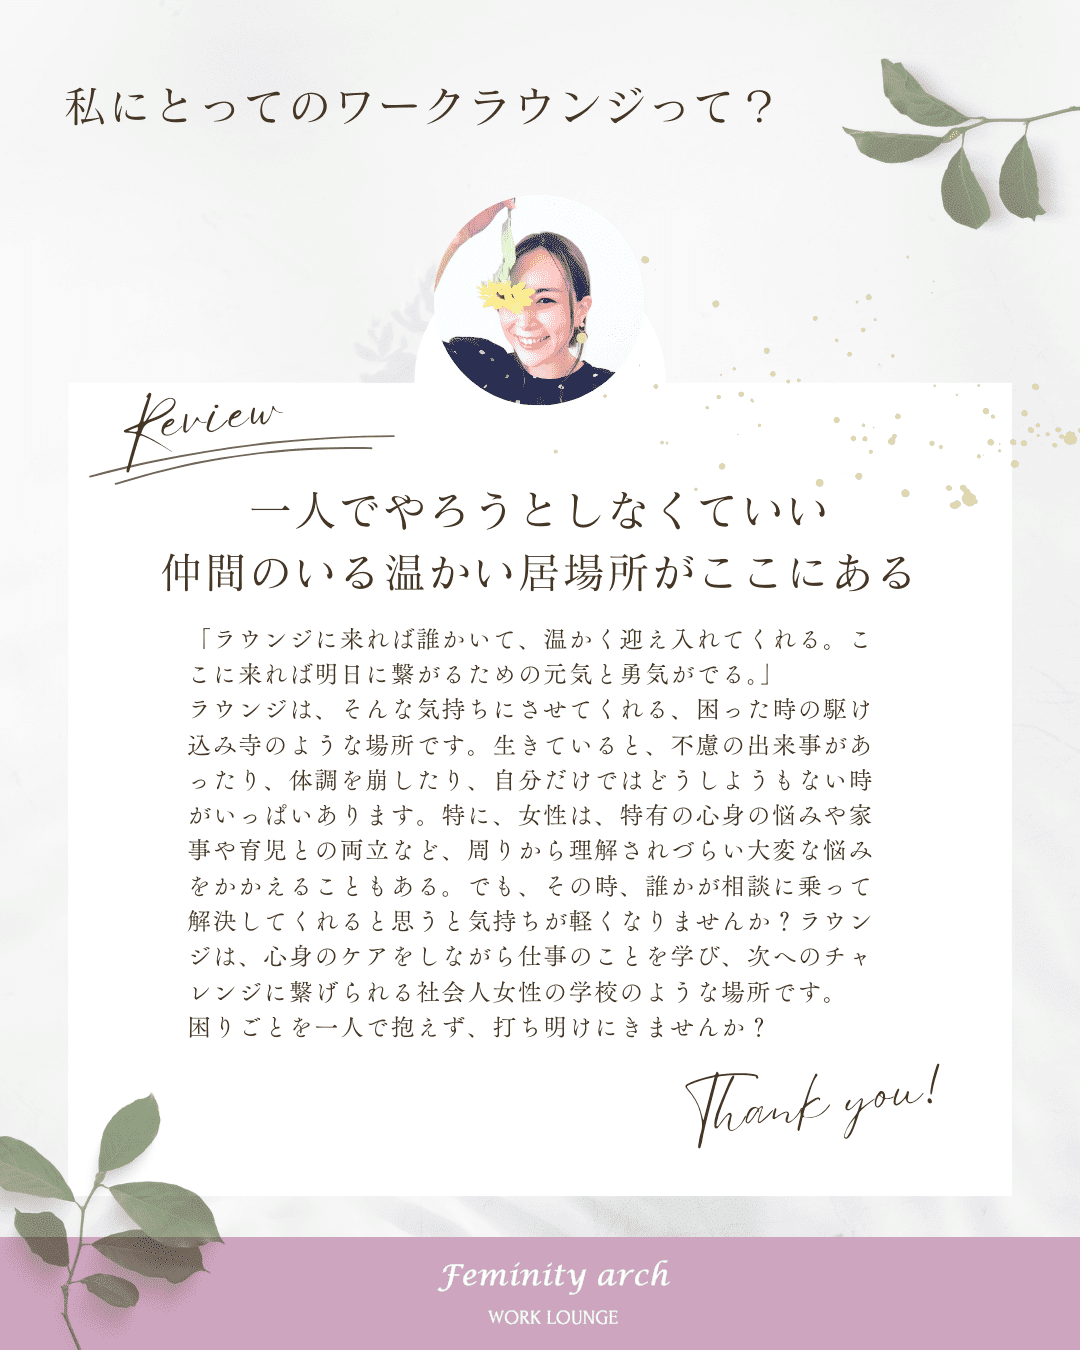 私にとってのワークラウンジって？
Review
一人でやろうとしなくていい
仲間のいる温かい居場所がここにある
「ラウンジに来れば誰かいて、温かく迎え入れてくれる。こ
こに来れば明日に繋がるための元気と勇気がでる。」
ラウンジは、そんな気持ちにさせてくれる、困った時の駆け
込み寺のような場所です。生きていると、不慮の出来事があ
ったり、体調を崩したり、自分だけではどうしようもない時
がいっぱいあります。特に、女性は、特有の心身の悩みや家
事や育児との両立など、周りから理解されづらい大変な悩み
をかかえることもある。でも、その時、誰かが相談に乗って
解決してくれると思うと気持ちが軽くなりませんか？ラウン
ジは、心身のケアをしながら仕事のことを学び、次へのチャ
レンジに繋げられる社会人女性の学校のような場所です。
困りごとを一人で抱えず、打ち明けにきませんか？
Thank you!
Feminity arch
WORK LOUNGE